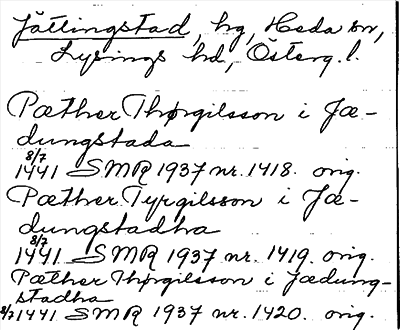 Jättingstad, hg, Heda sn,
Lysings hd, Österg.l.
Pæther Thørgilsson i Jæ-
dungstada
8/7
1441 SMR 1937 nr. 1418. orig.
Pæther Tyrgilsson i Jæ-
dungstadha
8/7
1441 SMR 1937 nr. 1419. orig.
Pæther Thørgilsson i Jædung-
stadha
8/7 1441 SMR 1937 nr. 1420. orig.